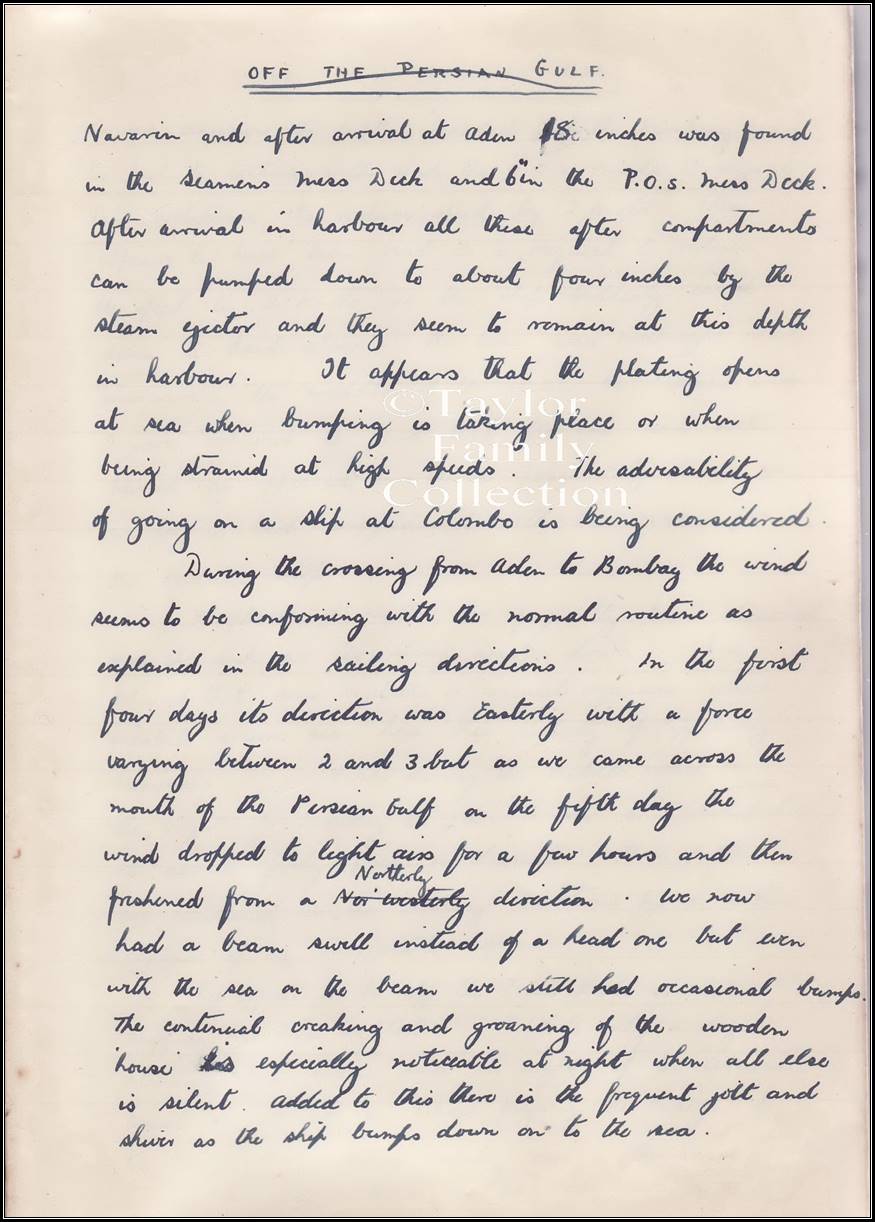 OFF THE PERSIAN GULF.
Navarin and after arrival at Aden 18 inches was found
in the Seamen's Mess Deck and 6" in the P.O.s. Mess Deck.
After arrival in harbour all these after compartments
can be pumped down to about four inches by the
steam ejector and they seem to remain at this depth
in harbour. It appears that the plating opens
at sea when bumping is taking place or when
being strained at high speeds. The advisability
of going on a slip at Colombo is being considered.
During the crossing from Aden to Bombay the wind
seems to be conforming with the normal routine as
explained in the sailing directions. In the first
four days its direction was Easterly with a force
varying between 2 and 3 but as we came across the
mouth of the Persian Gulf on the fifth day the
wind dropped to light airs for a few hours and then
Northerly
freshened from a Nor'westerly direction. We now
had a beam swell instead of a head one but even
with the sea on the beam we still had occasional bumps.
The continual creaking and groaning of the wooden
'house' is especially noticeable at night when all else
is silent. Added to this there is the frequent jolt and
shiver as the ship bumps down on to the sea.
©Taylor
Family
Collection